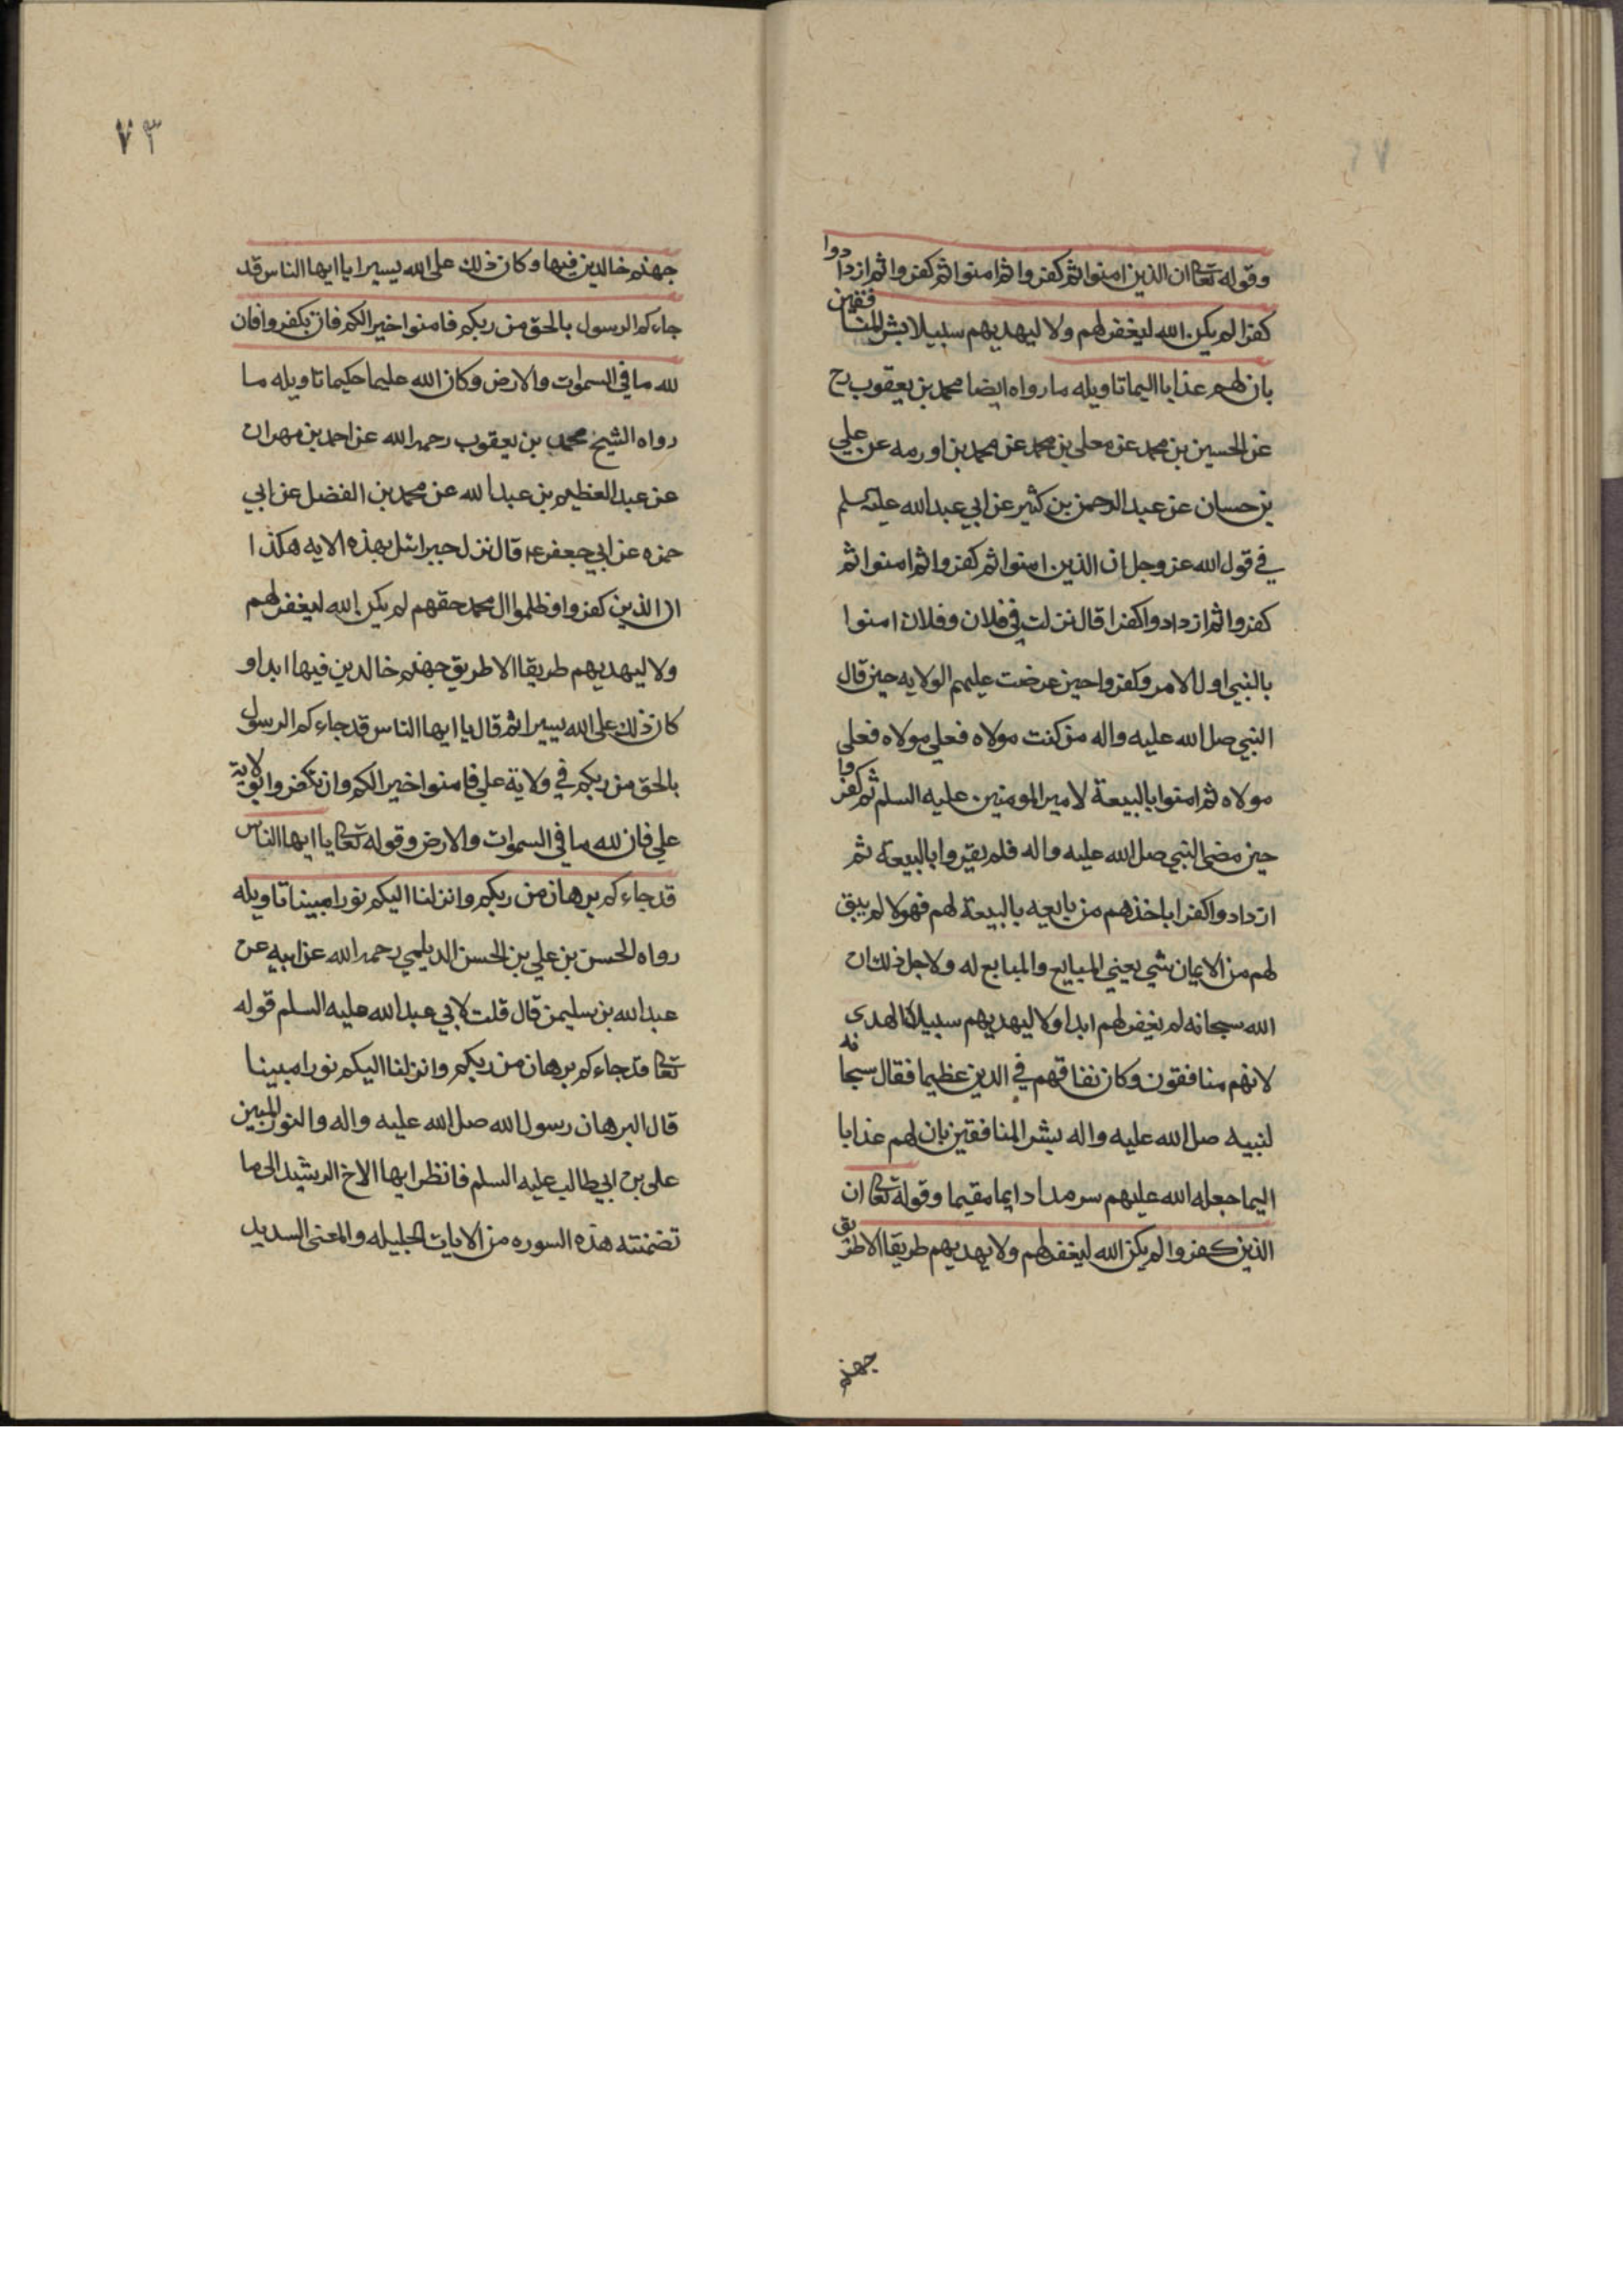 وقوله تعا ان الذين امنوا ثم كفروا ثم امنوا ثم كفروا ثم ازدادوا
كفرا لم يكن الله ليغفر لهم ولا ليهديهم سبيلا بشر المنافقين
بان لهم عذابا اليما تاويله ما رواه ايضا محمد بن يعقوب رح
عن الحسين بن محمد عن معلى بن محمد عن محمد بن اورمه عن علي
بن حسان عن عبد الرحمن بن كثير عن ابي عبد الله عليه سلم
في قول الله عز وجل ان الذين امنوا ثم كفروا ثم امنوا ثم
كفروا ثم ازدادوا كفرا قال نزلت في فلان وفلان امنوا
بالنبي اول الامر وكفروا حين عرضت عليهم الولايه حين قال
النبي صل الله عليه واله من كنت مولاه فعلي مولاه فعلى
مولاه ثم امنوا بالبيعة لامير المومنين عليه السلم ثم كفروا
حين مضى النبي صل الله عليه واله فلم يقروا بالبيعة ثم
ازدادوا كفرا باخذهم من بايعه بالبيعة لهم فهولا لم يبق
لهم من الايمان شي يعني المبايع والمبايع له ولاجل ذلك ان
الله سبحانه لم يغفر لهم ابدا ولا ليهديهم سبيلا الهدى
لانهم منافقون وكان نفاقهم في الدين عظيما فقال سبحانه
لنبيه صل الله عليه واله بشر المنافقين بان لهم عذابا
اليما جعله الله عليهم سرمدا دايما مقيما وقوله تعا ان
الذين كفروا لم يكن الله ليغفر لهم ولا يهديهم طريقا الا طريق
جهنم
٧٣
جهنم خالدين فيها وكان ذلك على الله يسيرا يا ايها الناس قد
جاءكم الرسول بالحق من ربكم فامنوا خيرا لكم فان تكفروا فان
لله ما في السموات والارض وكان الله عليما حكيما تاويله ما
رواه الشيخ محمد بن يعقوب رحمه الله عن احمد بن مهران
عن عبد العظيم بن عبد الله عن محمد بن الفضل عن ابي
حمزه عن ابي جعفر ع قال نزل جبرائيل بهذه الايه هكذا
ان الذين كفروا وظلموا ال محمد حقهم لم يكن الله ليغفر لهم
ولا ليهديهم طريقا الا طريق جهنم خالدين فيها ابدا و
كان ذلك على الله يسيرا ثم قال يا ايها الناس قد جاءكم الرسول
بالحق من ربكم في ولاية علي فامنوا خيرا لكم وان تكفروا بولاية
علي فان لله ما في السموات والارض وقوله تعا يا ايها الناس
قد جاءكم برهان من ربكم وانزلنا اليكم نورا مبينا تاويله
رواه الحسن بن علي بن الحسن الديلمي رحمه الله عن ابيه عن
عبد الله بن سليمن قال قلت لابي عبد الله عليه السلم قوله
تعا قد جاءكم برهان من ربكم وانزلنا اليكم نورا مبينا
قال البرهان رسول الله صل الله عليه واله والنور المبين
علي بن ابي طالب عليه السلم فانظر ايها الاخ الرشيد الى ما
تضمنته هذه السوره من الايات الجليله والمعنى السديد